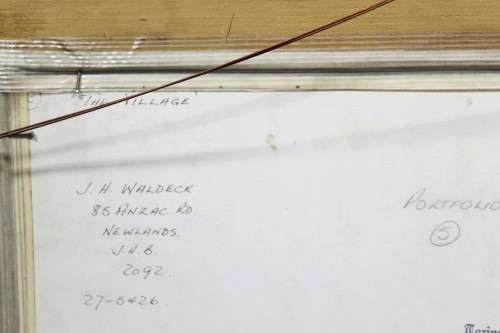 "THE VILLAGE"
J. H. WALDECK
85 ANZAC RD.
NEWLANDS.
J.H.B.
2092.
27-6426
PORTFOLIO
5